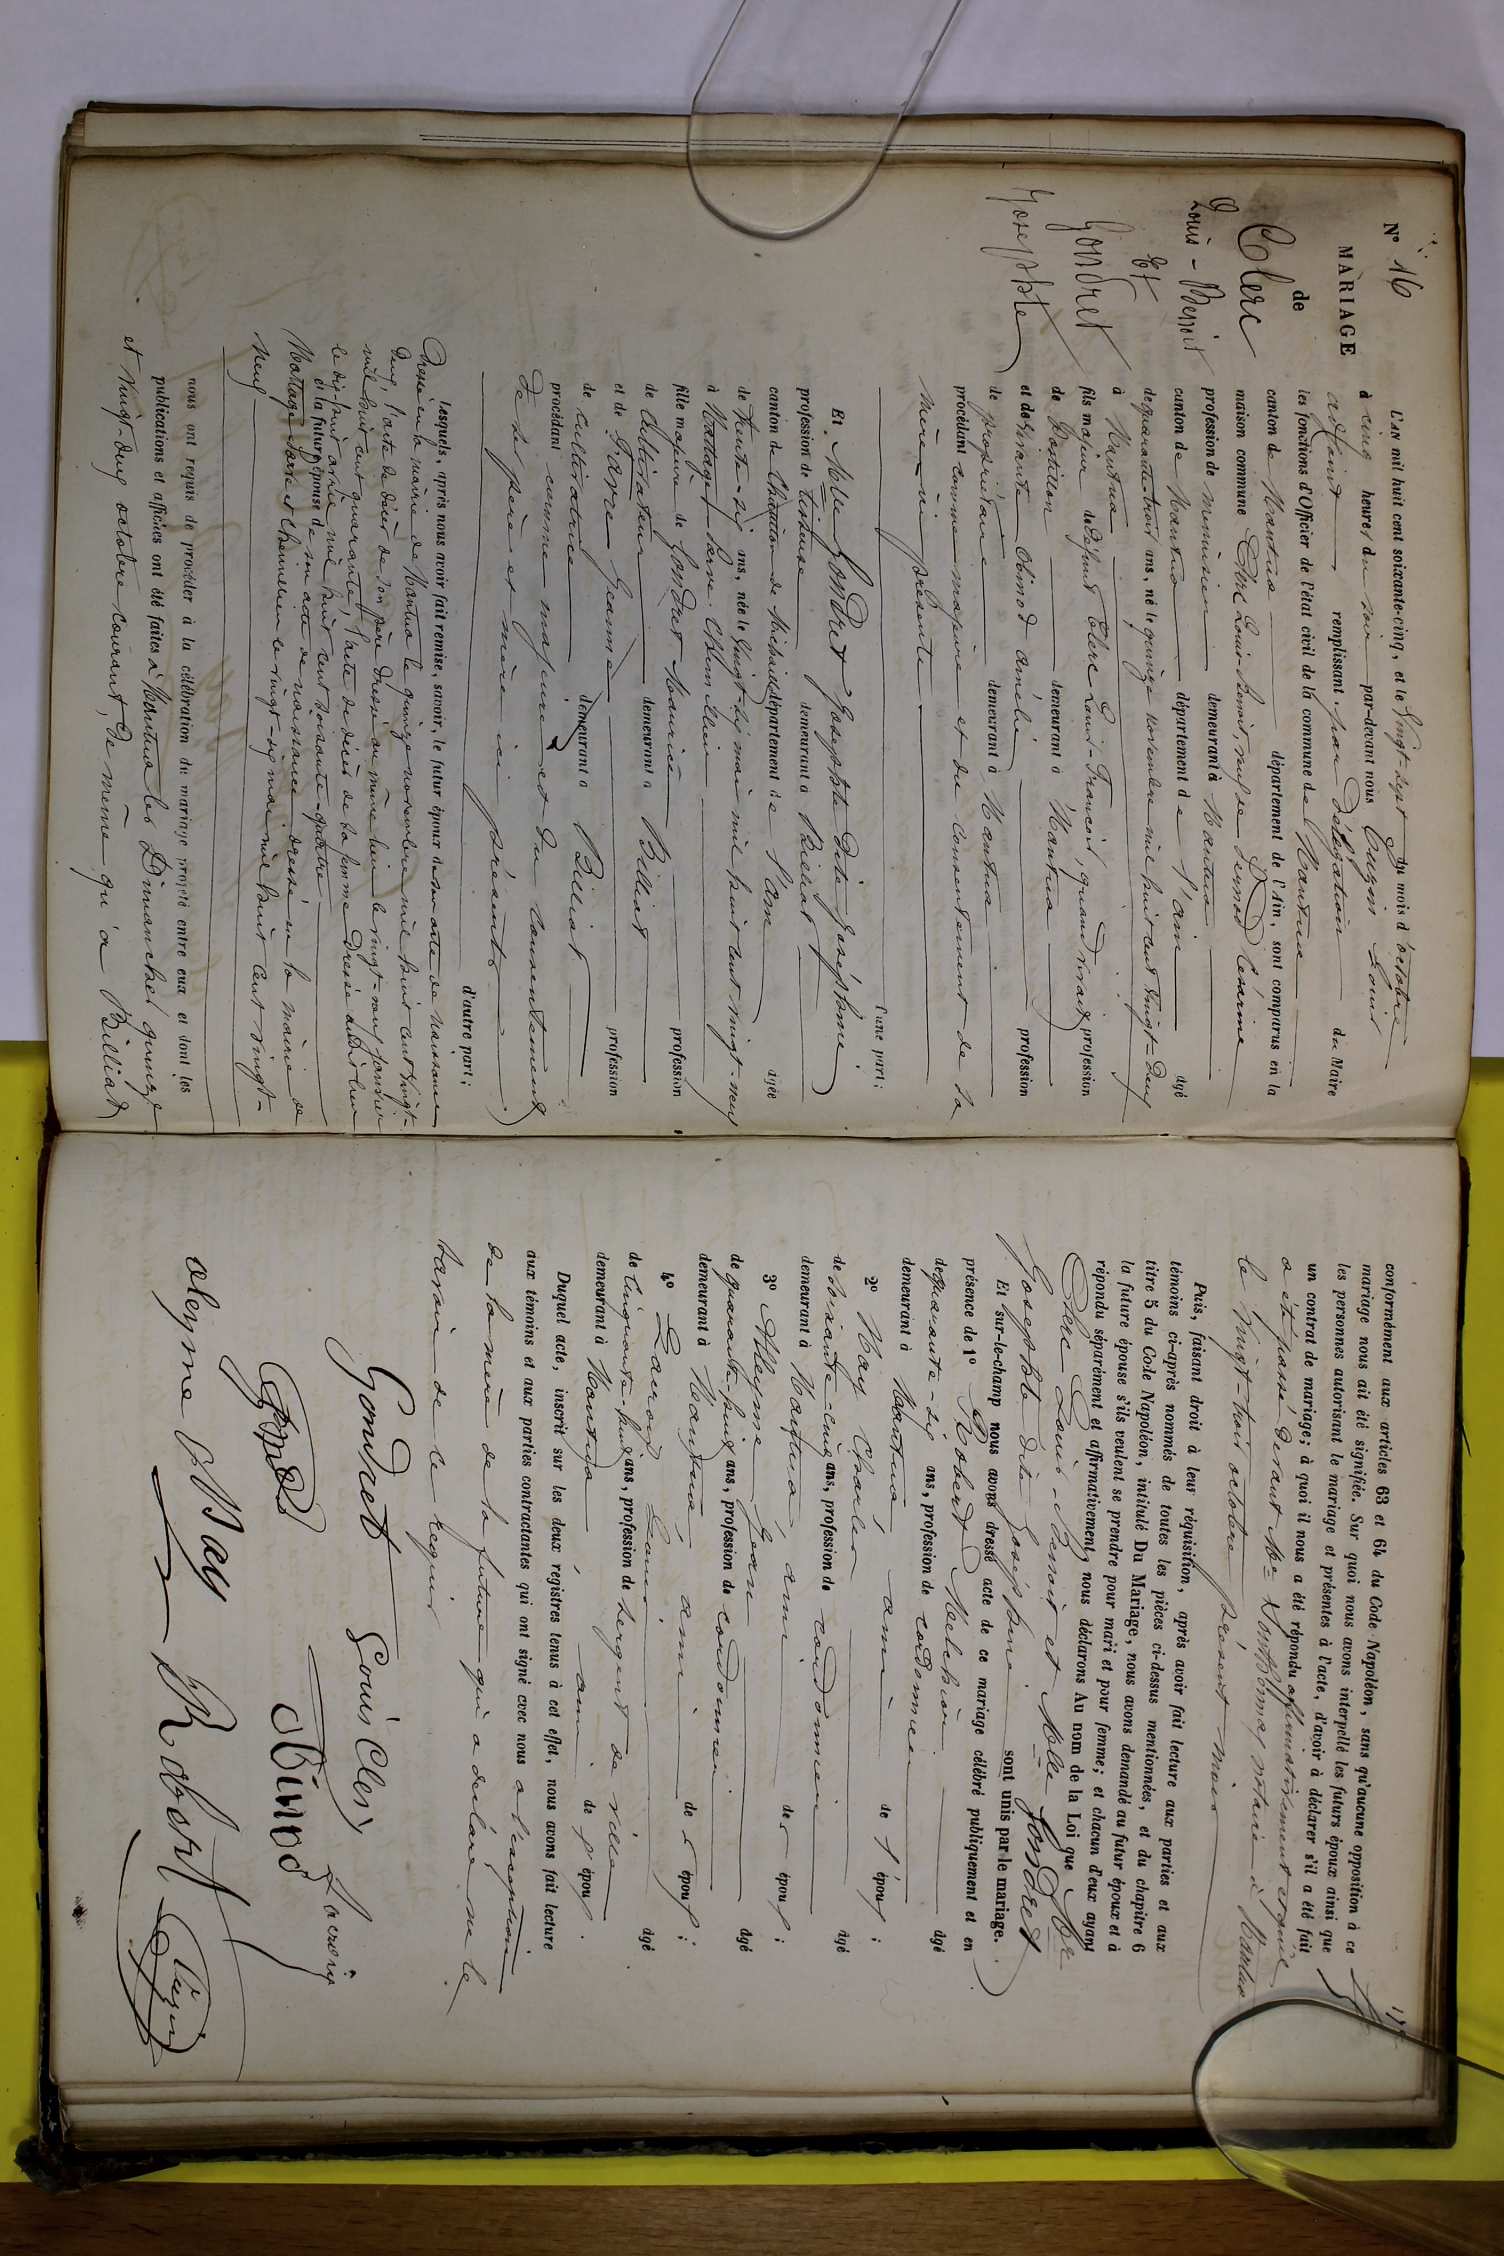 N° 16
MARIAGE
de
Clerc
Louis-Benoit
Et
Gondret
Josephte
L'an mil huit cent soixante-cinq, et le vingt-sept du mois d'octobre
à cinq heures du soir par-devant nous Cugin Louis
adjoint remplissant par délégation du Maire
les fonctions d'Officier de l'état civil de la commune de Nantua
canton de Nantua département de l'Ain, sont comparus en la
maison commune Clerc Louis-Benoit, veuf de Césarine
profession de menuisier demeurant à Nantua
canton de Nantua département de l'ain âgé
de quarante trois ans, né le quinze novembre mil huit cent vingt-deux
à Nantua
fils majeur de défunt Clerc Louis-François, quand vivait profession
de Postillon demeurant à Nantua
et de vivante Obinod profession
de propriétaire demeurant à Nantua
procédant comme majeur et du consentement de la
mère ici présente
d'une part;
Et Melle Gondret Josephte dite Joséphine
profession de tisseuse demeurant à Billiat
canton de Châtillon de Michaille département de l'ain âgée
de trente-six ans, née le vingt-six mai mil huit cent vingt-neuf
à
fille majeure de Gondret Maurice profession
de Cultivateur demeurant à Billiat
et de Jeanne profession
de Cultivatrice demeurant à Billiat
procédant comme majeure et du consentement
de ses père et mère ici présents
d'autre part;
Lesquels, après nous avoir fait remise, savoir, le futur époux de son acte de naissance
Dressé en la mairie de Nantua le quinze novembre mil huit cent vingt-
deux, l'acte de décès de son père dressé au même lieu le vingt-neuf janvier
mil huit cent quarante, l'acte de décès de sa femme dressé audit lieu
le dix-huit avril mil huit cent soixante-quatre
et la future épouse de son acte de naissance dressé en la mairie de
le vingt-six mai mil huit cent vingt-
neuf
nous ont requis de procéder à la célébration du mariage projeté entre eux et dont les
publications et affiches ont été faites à Nantua les Dimanches quinze
et vingt-deux octobre courant, de même qu'à Billiat
conformément aux articles 63 et 64 du Code Napoléon, sans qu'aucune opposition à ce
mariage nous ait été signifiée. Sur quoi nous avons interpellé les futurs époux ainsi que
les personnes autorisant le mariage et présentes à l'acte, d'avoir à déclarer s'il a été fait
un contrat de mariage; à quoi il nous a été répondu affirmativement et qu'il
a été passé devant Me notaire à Nantua
le vingt-trois octobre présent mois
Puis, faisant droit à leur réquisition, après avoir fait lecture aux parties et aux
témoins ci-après nommés de toutes les pièces ci-dessus mentionnées, et du chapitre 6
titre 5 du Code Napoléon, intitulé Du Mariage, nous avons demandé au futur époux et à
la future épouse s'ils veulent se prendre pour mari et pour femme; et chacun d'eux ayant
répondu séparément et affirmativement, nous déclarons Au nom de la Loi que Mr
Clerc Louis-Benoit et Melle Gondret
Josephte dite Joséphine sont unis par le mariage.
Et sur-le-champ nous avons dressé acte de ce mariage célébré publiquement et en
présence de 1° Robert Melchior âgé
de quarante-six ans, profession de cordonnier
demeurant à Nantua ami de l'époux;
2° Nay Charles âgé
de soixante-cinq ans, profession de cordonnier
demeurant à Nantua ami de l'époux;
3° Aleyme Jean âgé
de quarante-huit ans, profession de cordonnier
demeurant à Nantua ami de l'époux;
4° âgé
de cinquante-huit ans, profession de sergent de ville
demeurant à Nantua ami de l'époux.
Duquel acte, inscrit sur les deux registres tenus à cet effet, nous avons fait lecture
aux témoins et aux parties contractantes qui ont signé avec nous à l'exception
de la mère de la future qui a déclaré ne le
savoir de ce requis
Gondret Louis Clerc
Obinod
aleyme Nay Robert Cugin